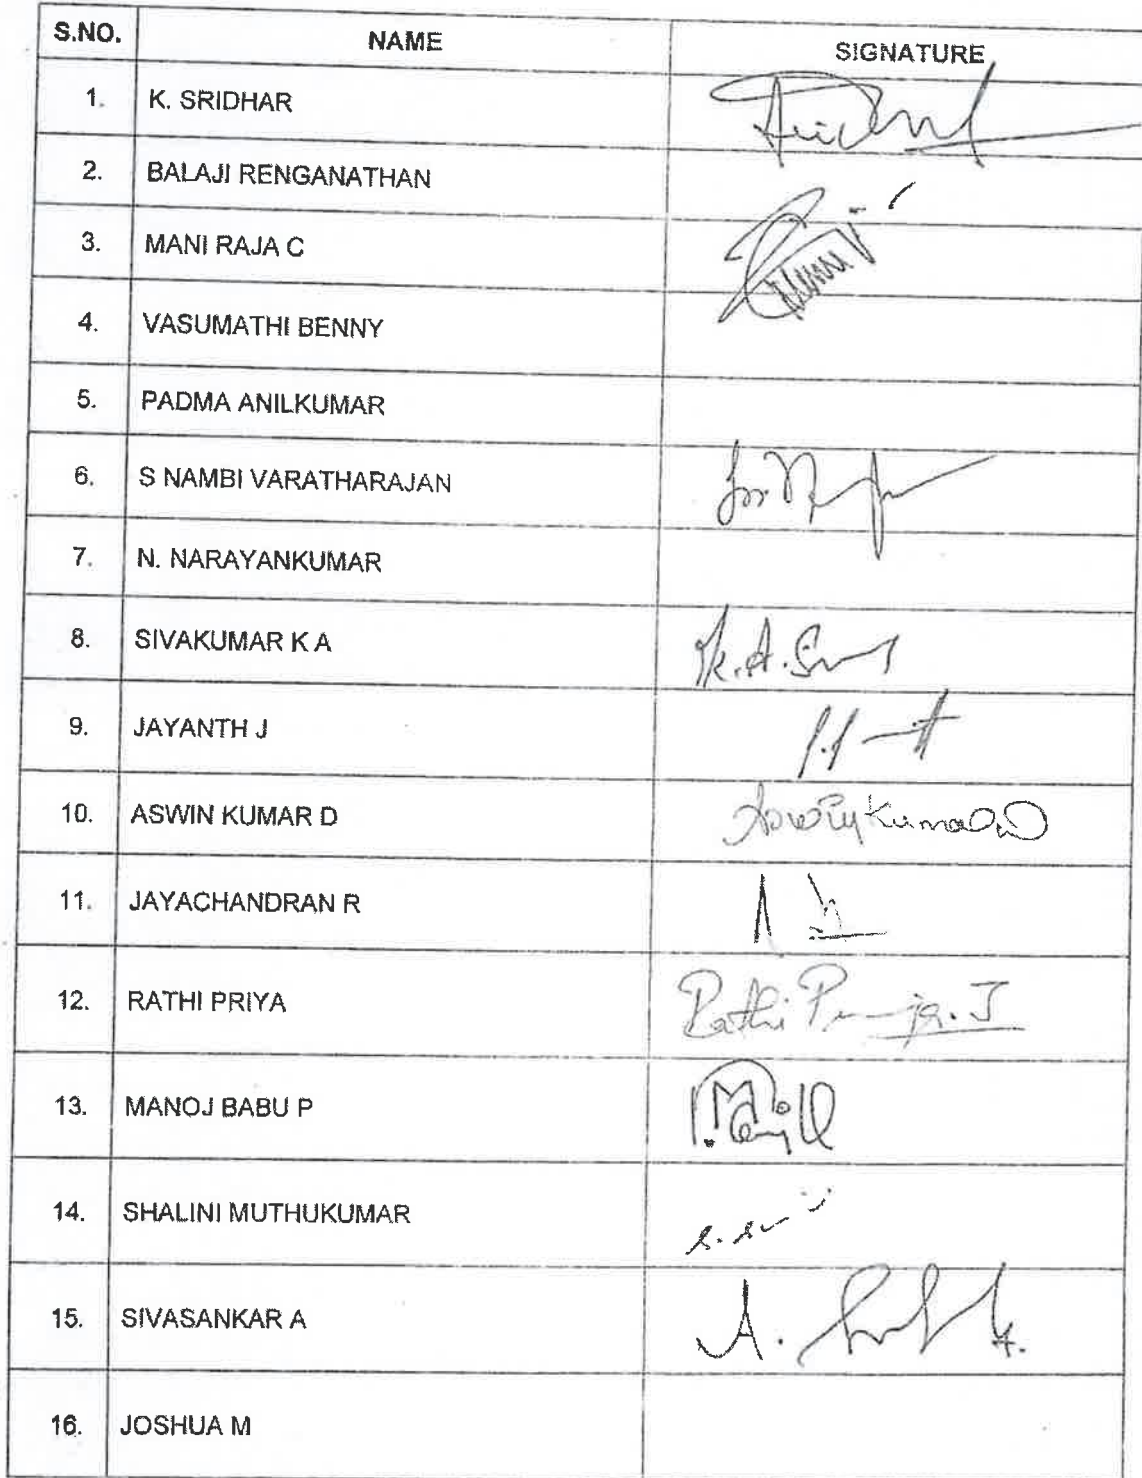 S.NO. NAME SIGNATURE
1. K. SRIDHAR
2. BALAJI RENGANATHAN
3. MANI RAJA C
4. VASUMATHI BENNY
5. PADMA ANILKUMAR
6. S NAMBI VARATHARAJAN
7. N. NARAYANKUMAR
8. SIVAKUMAR K A K.A.
9. JAYANTH J
10. ASWIN KUMAR D
11. JAYACHANDRAN R
12. RATHI PRIYA Rathi Priya. J
13. MANOJ BABU P
14. SHALINI MUTHUKUMAR
15. SIVASANKAR A A.
16. JOSHUA M